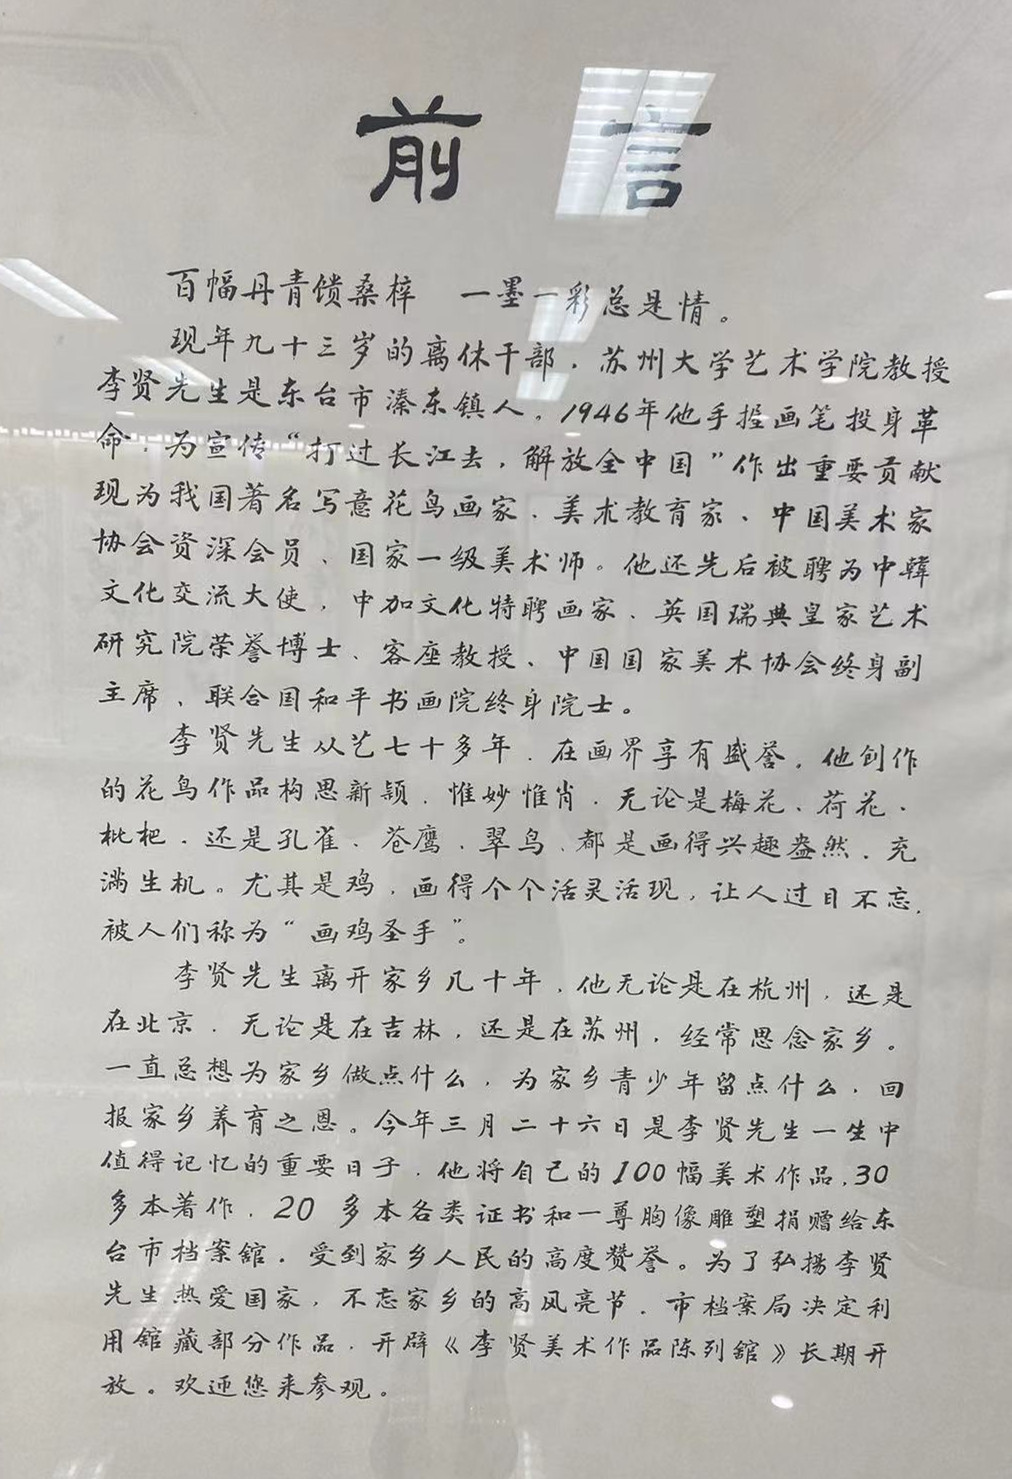 前言
百幅丹青馈桑梓 一墨一彩总是情。
现年九十三岁的离休干部，苏州大学艺术学院教授
李贤先生是东台市溱东镇人。1946年他手握画笔投身革
命，为宣传“打过长江去，解放全中国”作出重要贡献
现为我国著名写意花鸟画家、美术教育家、中国美术家
协会资深会员、国家一级美术师。他还先后被聘为中韓
文化交流大使，中加文化特聘画家、英国瑞典皇家艺术
研究院荣誉博士、客座教授、中国国家美术协会终身副
主席、联合国和平书画院终身院士。
李贤先生从艺七十多年，在画界享有盛誉。他创作
的花鸟作品构思新颖，惟妙惟肖，无论是梅花、荷花、
枇杷，还是孔雀、苍鹰、翠鸟，都是画得兴趣盎然，充
满生机。尤其是鸡，画得个个活灵活现，让人过目不忘，
被人们称为“画鸡圣手”。
李贤先生离开家乡几十年，他无论是在杭州，还是
在北京，无论是在吉林，还是在苏州，经常思念家乡。
一直总想为家乡做点什么，为家乡青少年留点什么，回
报家乡养育之恩。今年三月二十六日是李贤先生一生中
值得记忆的重要日子，他将自己的100幅美术作品，30
多本著作，20 多本各类证书和一尊胸像雕塑捐赠给东
台市档案舘，受到家乡人民的高度赞誉。为了弘揚李贤
先生热爱国家，不忘家乡的高风亮节，市档案局决定利
用舘藏部分作品，开辟《李贤美术作品陈列舘》长期开
放。欢迎您来参观。